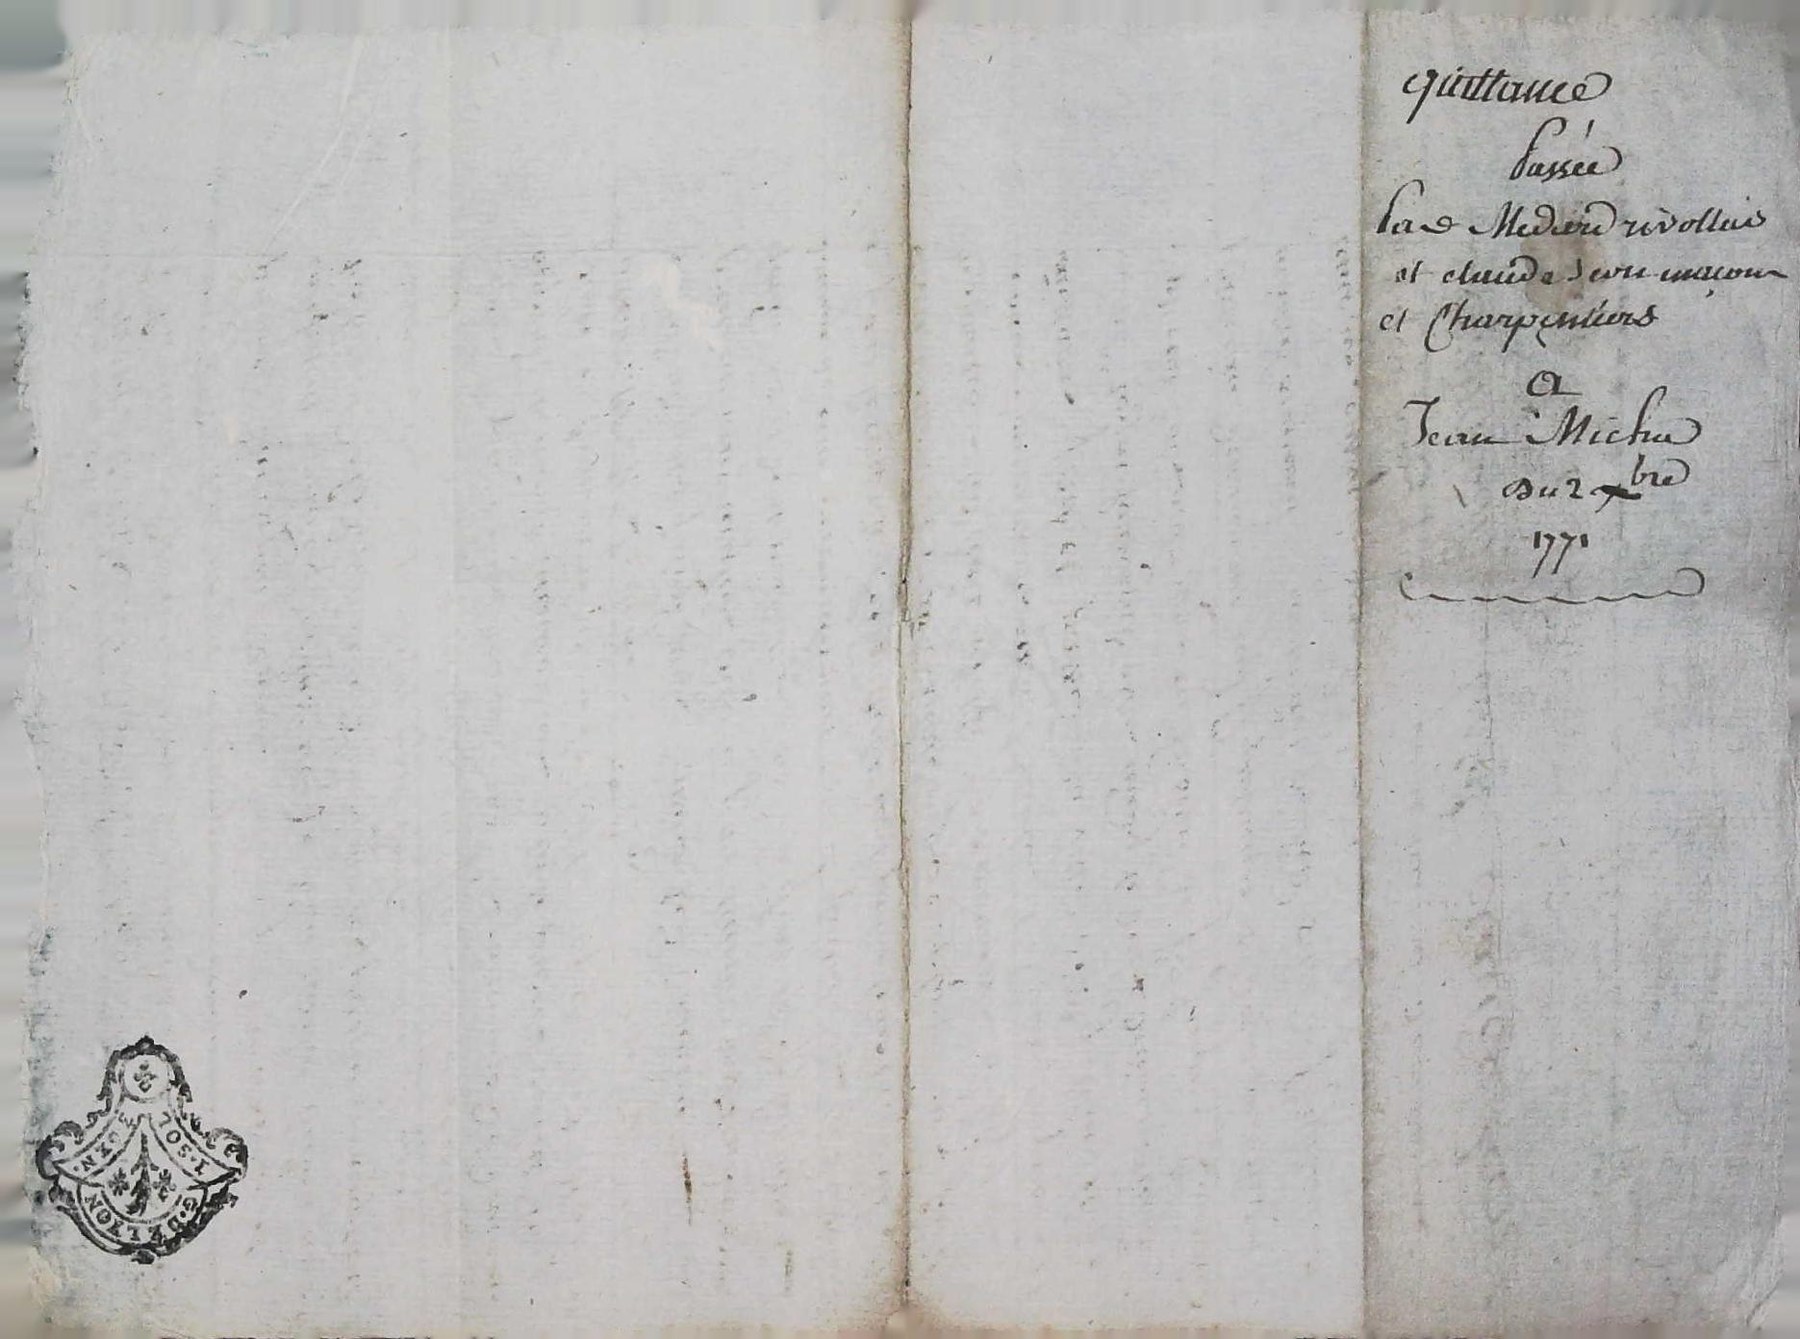 quittance
Passée
Par Medard rivollier
et claude Jean maçon
et Charpentiers
A
Jean Michu
Du 2 xbre
1771
1·SOL
G·DE LYON